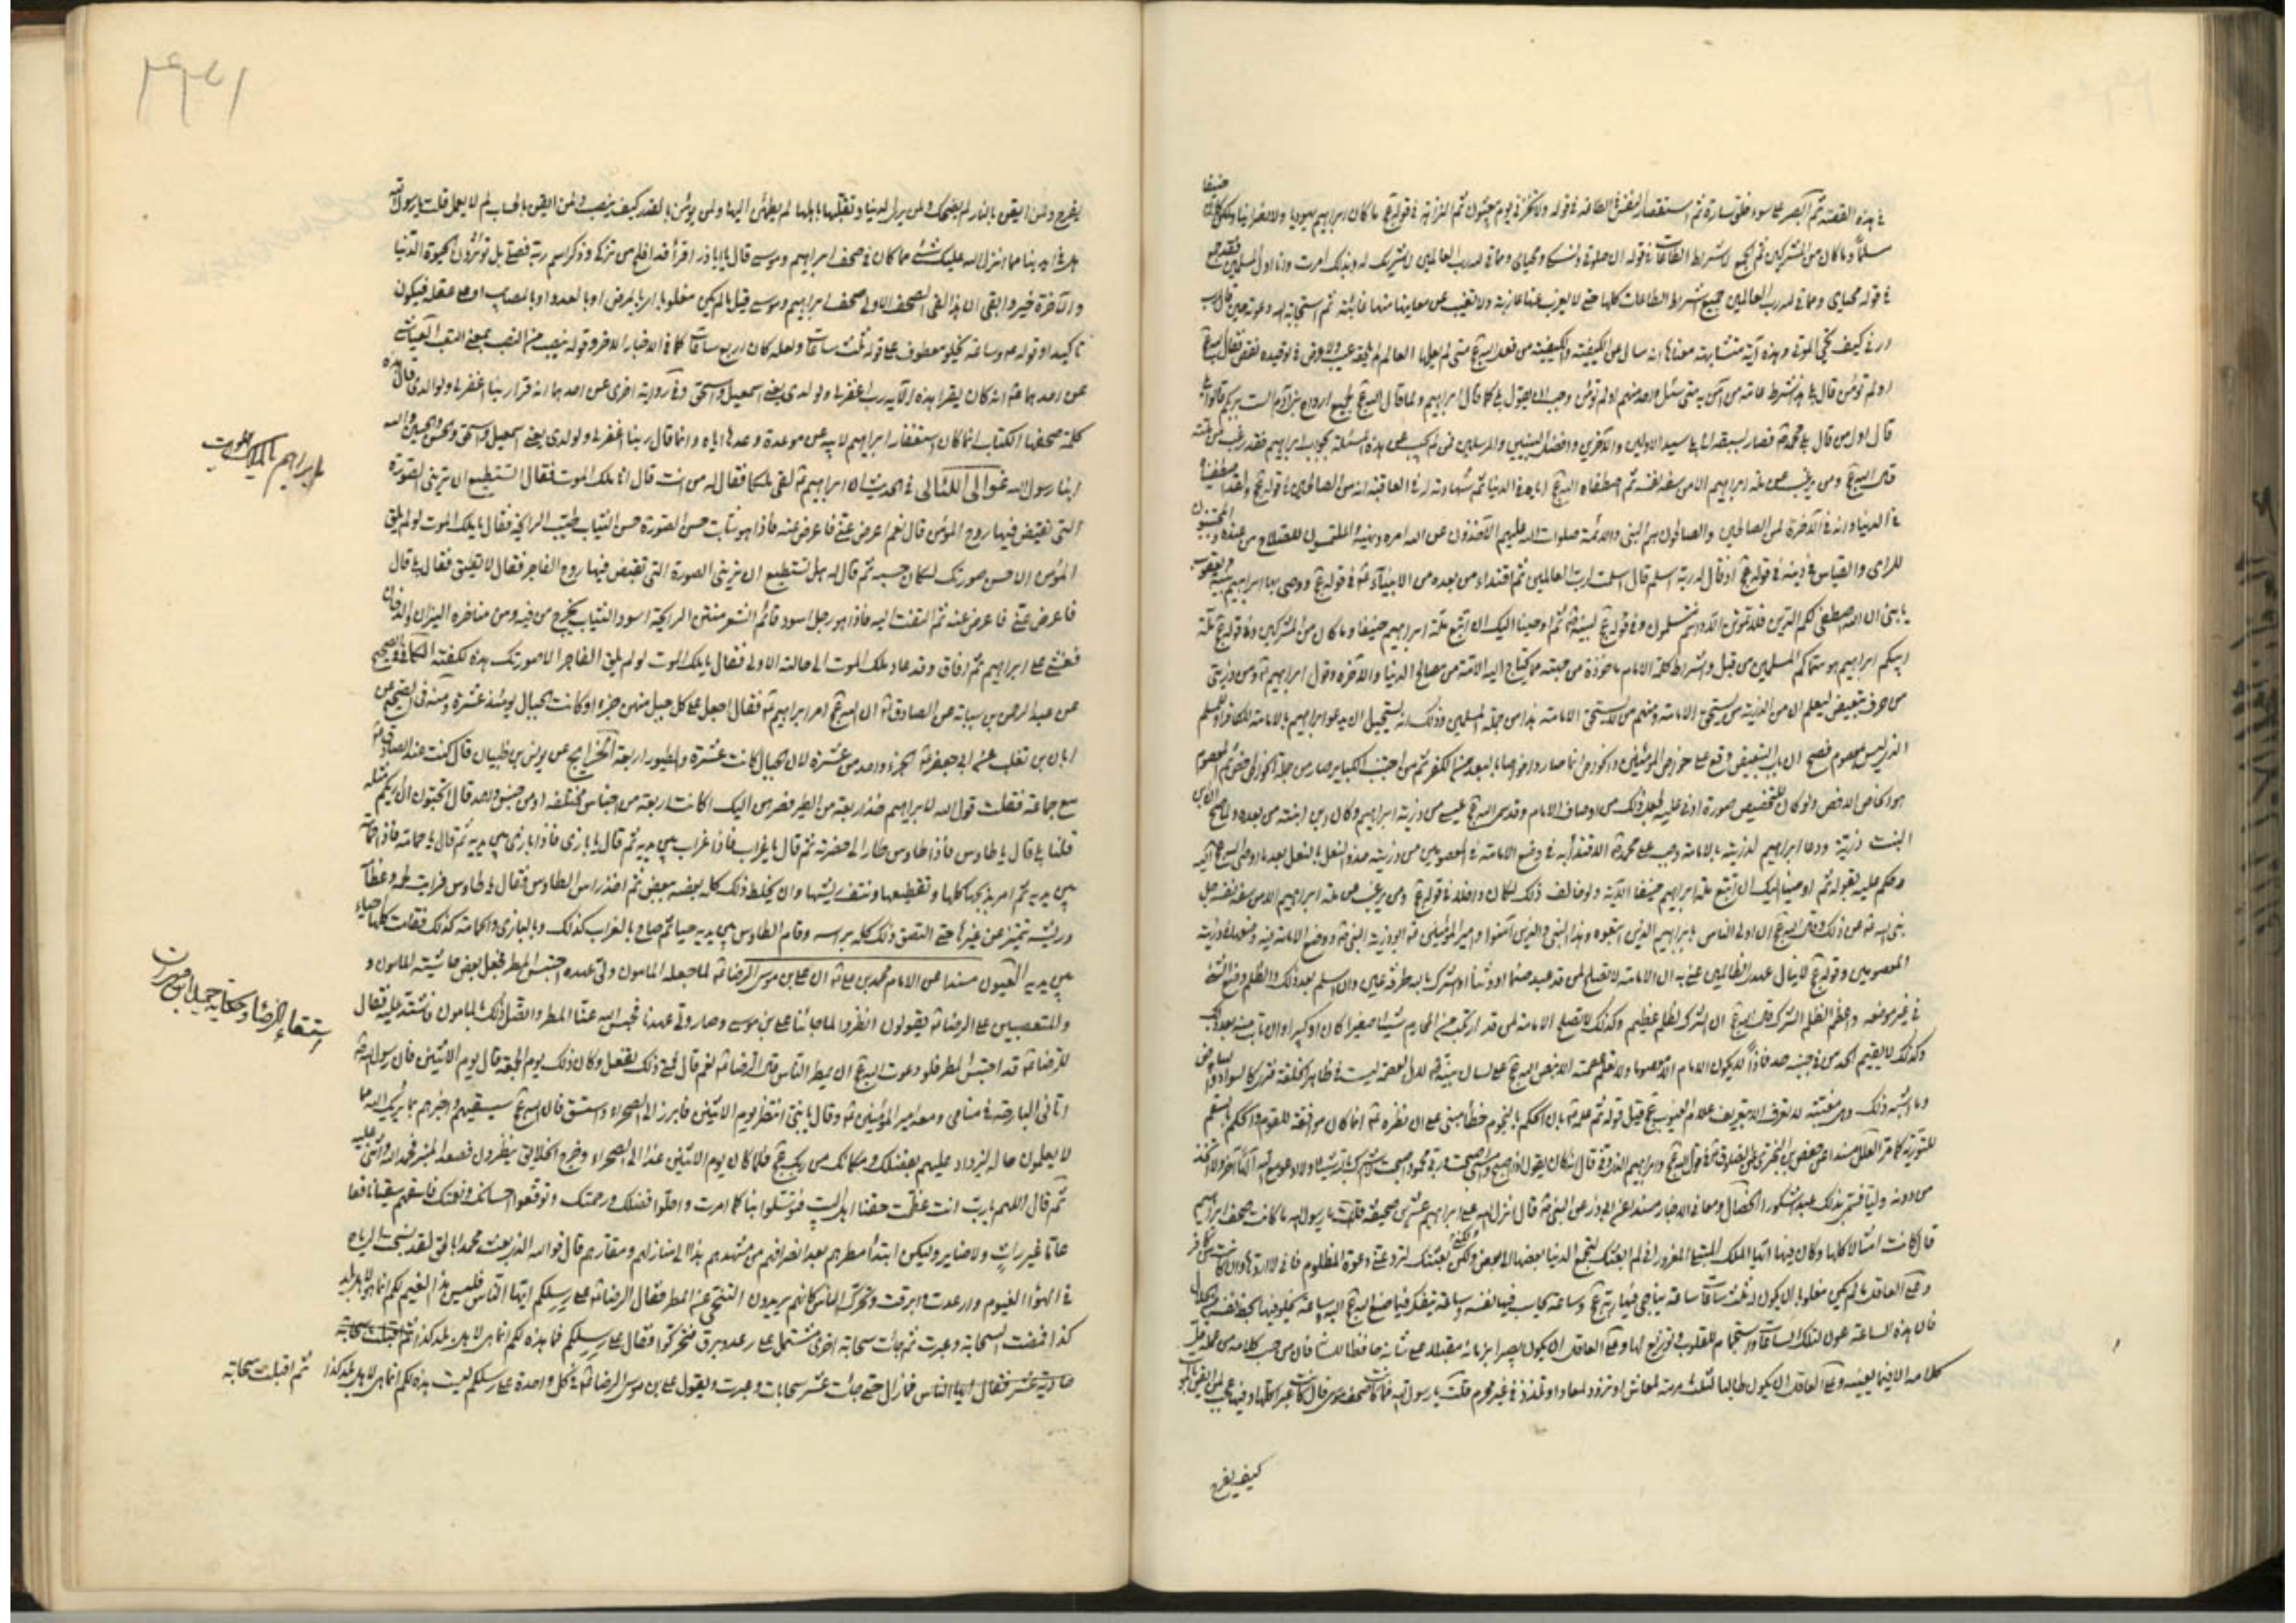 في هذه القصة ثم الصبر على سوء خلق سارة ثم استقصار النفس في الطاعة في قوله ولا تخزني يوم يبعثون ثم الزلفة في قوله تع ما كان ابراهيم يهوديا ولا نصرانيا ولكن كان حنيفا
مسلما وما كان من المشركين ثم الجمع لاشراط الطاعات في قوله ان صلوتي ونسكي ومحياي ومماتي لله رب العالمين لا شريك له وبذلك امرت وانا اول المسلمين فقد جمع
في قوله محياي ومماتي لله رب العالمين جميع اشراط الطاعات كلها حتى لا يعزب عنها عازبة ولا تغيب عن معانيها منها غائبة ثم استجابة الله دعوته حين قال رب
ارني كيف تحيي الموتى وهذه آية متشابهة معناها انه سال عن الكيفية والكيفية من فعل الله تع متى لم يعلمها العالم لم يلحقه عيب ولا عرض في توحيده نقص فقال الله تع
اولم تؤمن قال بلى هذا شرط عامة من آمن به متى سئل واحد منهم اولم تؤمن وجب ان يقول بلى كما قال ابراهيم ولما قال الله تع لجميع ارواح بني آدم الست بربكم قالوا بلى
قال اول من قال بلى محمد ص فصار بسبقه الى بلى سيد الاولين والآخرين وافضل النبيين والمرسلين فمن لم يجب عن هذه المسئلة بجواب ابراهيم فقد رغب عن ملته
قال الله تع ومن يرغب عن ملة ابراهيم الا من سفه نفسه ثم اصطفاه الله تع اياه في الدنيا ثم شهادته له في العاقبة انه من الصالحين في قوله تع ولقد اصطفيناه
في الدنيا وانه في الآخرة لمن الصالحين والصالحون هم النبي والائمة صلوات الله عليهم الآخذون عن الله امره ونهيه والملتمسون للصلاح من عنده والمجتنبون
للراي والقياس في دينه في قوله تع اذ قال له ربه اسلم قال اسلمت لرب العالمين ثم اقتداء من بعده من الانبياء ع به في قوله تع ووصى بها ابراهيم بنيه ويعقوب
يا بني ان الله اصطفى لكم الدين فلا تموتن الا وانتم مسلمون وفي قوله تع لنبيه ص ثم اوحينا اليك ان اتبع ملة ابراهيم حنيفا وما كان من المشركين وفي قوله تع ملة
ابيكم ابراهيم هو سماكم المسلمين من قبل واشراط كلمة الامام ماخوذة من جهته مما يحتاج اليه الامة من مصالح الدنيا والآخرة وقول ابراهيم ع ومن ذريتي
من حرف تبعيض ليعلم ان من الذرية من يستحق الامامة ومنهم من لا يستحق الامامة هذا من جملة المسلمين وذلك انه يستحيل ان يدعو ابراهيم بالامامة للكافر او للمسلم
الذي ليس بمعصوم فصح ان باب التبعيض وقع على خواص المؤمنين والخواص انما صاروا خواصا بالبعد من الكفر ثم من اجتنب الكبائر صار من جملة الخواص اخص ثم المعصوم
هو الخاص الاخص ولو كان للتخصيص صورة اربى عليه لجعل ذلك من اوصاف الامام وقد سمى الله تع عيسى من ذرية ابراهيم وكان ابن ابنته من بعده ولما صح ان ابن
البنت ذرية ودعا ابراهيم لذريته بالامامة وجب على محمد ص الاقتداء به في وضع الامامة في المعصومين من ذريته حذو النعل بالنعل بعد ما اوحى الله تع اليه
وحكم عليه بقوله ثم اوحينا اليك ان اتبع ملة ابراهيم حنيفا الآية ولو خالف ذلك لكان داخلا في قوله تع ومن يرغب عن ملة ابراهيم الا من سفه نفسه جل
نبي الله ص عن ذلك وقال الله تع ان اولى الناس بابراهيم للذين اتبعوه وهذا النبي والذين آمنوا وامير المؤمنين ع ابو ذرية النبي ص ووضع الامامة فيه وضعها في ذريته
المعصومين وقوله تع لا ينال عهدي الظالمين عنى به ان الامامة لا تصلح لمن قد عبد صنما او وثنا او اشرك بالله طرفة عين وان اسلم بعد ذلك والظلم وضع الشيء
في غير موضعه واعظم الظلم الشرك قال الله تع ان الشرك لظلم عظيم وكذلك لا تصلح الامامة لمن قد ارتكب من المحارم شيئا صغيرا كان او كبيرا وان تاب منه بعد ذلك
وكذلك لا يقيم الحد من في جنبه حد فاذا لا يكون الامام الا معصوما ولا تعلم عصمته الا بنص الله تع على لسان نبيه ص لان العصمة ليست في ظاهر الخلقة فترى كالسواد والبياض
وما اشبه ذلك وهي مغيبة لا تعرف الا بتعريف علام الغيوب
من دونه وليا فسمي بذلك عبدا شكورا الخصال ومعاني الاخبار مسندا عن ابي ذر عن النبي ص قال انزل الله على ابراهيم عشرين صحيفة قلت يا رسول الله ما كانت صحف ابراهيم
قال كانت امثالا كلها وكان فيها ايها الملك المبتلى المغرور اني لم ابعثك لتجمع الدنيا بعضها الى بعض ولكن بعثتك لترد عني دعوة المظلوم فاني لا اردها وان كانت من كافر
وعلى العاقل ما لم يكن مغلوبا ان يكون له ثلث ساعات ساعة يناجي فيها ربه تع وساعة يحاسب فيها نفسه وساعة يتفكر فيما صنع الله تع اليه وساعة يخلو فيها بحظ نفسه من الحلال
فان هذه الساعة عون لتلك الساعات واستجمام للقلوب وتوزيع لها وعلى العاقل ان يكون بصيرا بزمانه مقبلا على شانه حافظا للسانه فان من حسب كلامه من عمله قل
كلامه الا فيما يعنيه وعلى العاقل ان يكون طالبا لثلث مرمة لمعاش او تزود لمعاد او تلذذ في غير محرم قلت يا رسول الله فما كانت صحف موسى قال كانت عبرا كلها وفيها عجب لمن ايقن بالموت
كيف يفرح
٢٩٧١
ليفرح ولمن ايقن بالنار لم يضحك ولمن يرى الدنيا وتقلبها باهلها لم يطمئن اليها ولمن يؤمن بالقدر كيف ينصب ولمن ايقن بالحساب لم لا يعمل قلت يا رسول الله
هل في ايدينا مما انزل الله عليك شئ مما كان في صحف ابراهيم وموسى قال يا ابا ذر اقرأ قد افلح من تزكى وذكر اسم ربه فصلى بل تؤثرون الحيوة الدنيا
والآخرة خير وابقى ان هذا لفي الصحف الاولى صحف ابراهيم وموسى قيل ما لم يكن مغلوبا اي بالمرض او بالعدو او بالمصايب او على عقله فيكون
تاكيدا وقوله ص وساعة يخلو معطوف على قوله ثلث ساعات ولعله كان اربع ساعات كما في الاخبار الاخر وقوله ينصب من النصب بمعنى التعب العياشي
عن احدهما ع انه كان يقرا هذه الآية رب اغفر لي ولولدي يعني اسمعيل واسحق وفي رواية اخرى عن احدهما انه قرا ربنا اغفر لي ولوالدي قال هذه
كلمة صحفها الكتاب انما كان استغفار ابراهيم لابيه عن موعدة وعدها اياه وانما قال ربنا اغفر لي ولولدي يعني اسمعيل واسحق والحسن والحسين والله
ابنا رسول الله غوالي اللئالي في الحديث ان ابراهيم ع لقى ملكا فقال له من انت قال انا ملك الموت فقال اتستطيع ان تريني الصورة
التي تقبض فيها روح المؤمن قال نعم اعرض عني فاعرض عنه فاذا هو شاب حسن الصورة حسن الثياب طيب الرايحة فقال يا ملك الموت لو لم يلق
المؤمن الا حسن صورتك لكان حسبه ثم قال له هل تستطيع ان تريني الصورة التي تقبض فيها روح الفاجر فقال لا تطيق فقال بلى قال
فاعرض عني فاعرض عنه ثم التفت اليه فاذا هو رجل اسود قائم الشعر منتن الرايحة اسود الثياب يخرج من فيه ومن مناخره النيران والدخان
فغشي على ابراهيم ثم افاق وقد عاد ملك الموت الى حالته الاولى فقال يا ملك الموت لو لم يلق الفاجر الا صورتك هذه لكفته الكافي في الصحيح
عن عبد الرحمن بن سيابة عن الصادق ع ان الله تع امر ابراهيم ع فقال اجعل على كل جبل منهن جزءا وكانت الجبال يومئذ عشرة وفيه في الصحيح عن
ابان بن تغلب عن ابي جعفر ع الجزء واحد من عشرة لان الجبال كانت عشرة والطيور اربعة الخرايج عن يونس بن ظبيان قال كنت عند الصادق ع
مع جماعة فقلت قول الله لابراهيم خذ اربعة من الطير فصرهن اليك اكانت اربعة من اجناس مختلفة او من جنس واحد قال اتحبون ان اريكم مثله
قلنا بلى قال يا طاوس فاذا طاوس طار الى حضرته ثم قال يا غراب فاذا غراب بين يديه ثم قال يا بازي فاذا بازي بين يديه ثم قال يا حمامة فاذا حمامة
بين يديه ثم امر بذبحها كلها وتقطيعها ونتف ريشها وان يخلط ذلك كله بعضه ببعض ثم اخذ راس الطاوس فقال يا طاوس فرايت لحمه وعظامه
وريشه تتميز عن غيرها حتى التصق ذلك كله براسه وقام الطاوس بين يديه حيا ثم صاح بالغراب كذلك وبالبازي والحمامة كذلك فقامت كلها احياء
بين يديه العيون مسندا عن الامام محمد بن علي ع ان علي بن موسى الرضا ع لما جعله المامون ولي عهده احتبس المطر فجعل بعض حاشية المامون و
والمتعصبين على الرضا ع يقولون انظروا لما جائنا علي بن موسى وصار ولي عهدنا فحبس الله عنا المطر واتصل ذلك بالمامون فاشتد عليه فقال
للرضا ع قد احتبس المطر فلو دعوت الله تع ان يمطر الناس قال الرضا ع نعم قال فمتى تفعل ذلك وكان ذلك يوم الجمعة قال يوم الاثنين فان رسول الله ص
اتاني البارحة في منامي ومعه امير المؤمنين ع وقال يا بني انتظر يوم الاثنين فابرز الى الصحراء واستسق فان الله تع سيسقيهم واخبرهم بما يريك الله مما
لا يعلمون حاله ليزداد علمهم بفضلك ومكانك من ربك تع فلما كان يوم الاثنين غدا الى الصحراء وخرج الخلايق ينظرون فصعد المنبر فحمد الله واثنى عليه
ثم قال اللهم يا رب انت عظمت حقنا اهل البيت فتوسلوا بنا كما امرت واملوا فضلك ورحمتك وتوقعوا احسانك ونعمتك فاسقهم سقيا نافعا
عاما غير رايث ولا ضاير وليكن ابتداء مطرهم بعد انصرافهم من مشهدهم هذا الى منازلهم ومقارهم قال فوالله الذي بعث محمدا بالحق لقد نسجت الرياح
في الهواء الغيوم وارعدت وابرقت وتحرك الناس كانهم يريدون التنحي عن المطر فقال الرضا ع على رسلكم ايها الناس فليس هذا الغيم لكم انما هو لاهل بلد
كذا فمضت السحابة وعبرت ثم جائت سحابة اخرى تشتمل على رعد وبرق فتحركوا فقال على رسلكم فما هذه لكم انما هي لاهل بلد كذا
فما زال حتى جائت عشر سحابات وعبرت ويقول علي بن موسى الرضا ع في كل واحدة على رسلكم ليست هذه لكم انما هي لاهل بلد كذا ثم اقبلت سحابة
ابراهيم ملك الموت
استسقاء الرضا ع وحكاية حميد بن مهران